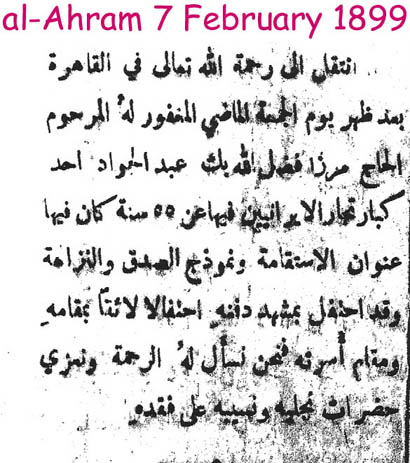 al-Ahram 7 February 1899
انتقل الى رحمة الله تعالى في القاهرة
بعد ظهر يوم الجمعة الماضي المغفور لهُ المرحوم
الحاج مرزا فضل الله بك عبد الجواد احد
كبار تجار الايرانيين فيها عن ٥٥ سنة كان فيها
عنوان الاستقامة ونموذج الصدق والنزاهة
وقد احتفل بمشهد دفنهِ احتفالا لائقاً بمقامهِ
ومقام أسرتهِ فنحن نسأل لهُ الرحمة ونعزي
حضرات نجليه ونسيبيه على فقدهِ